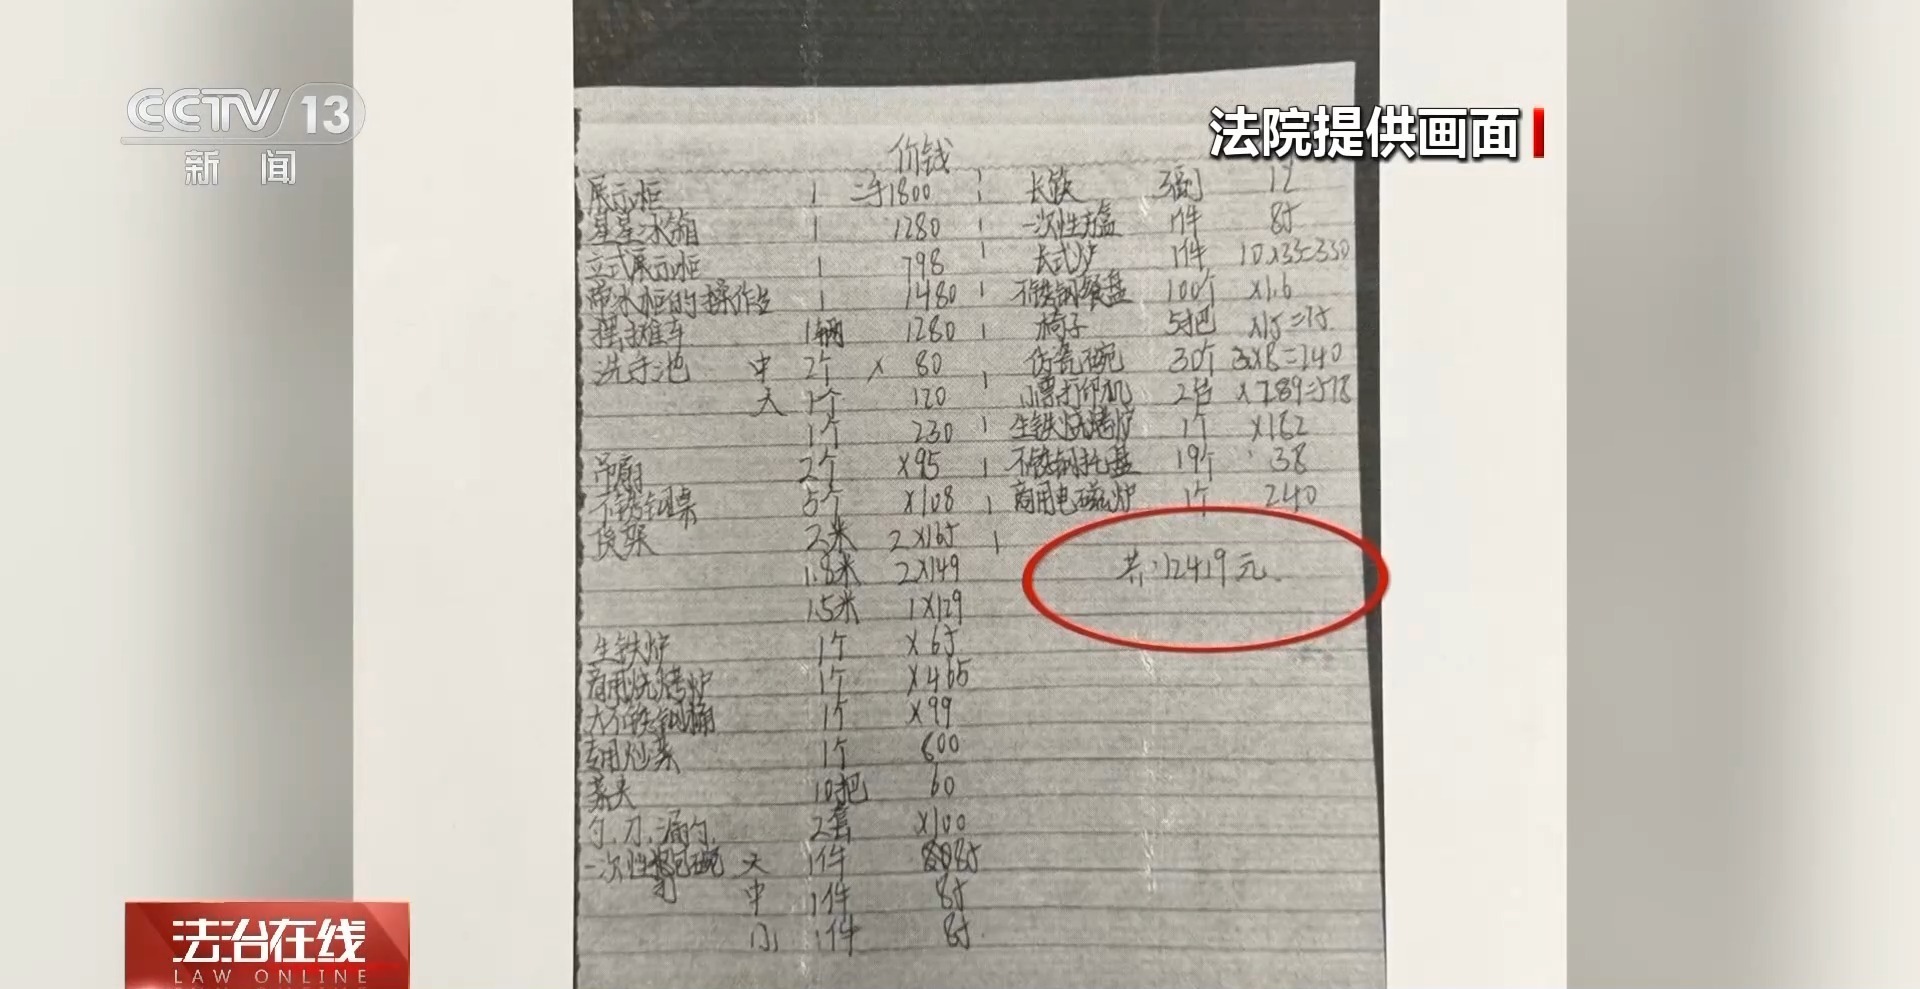 CCTV 13
新闻
法院提供画面
价钱
展示柜 1 二手1800
星星冰箱 1 1280
立式展示柜 1 798
带冰柜的操作台 1 1480
摆摊车 1辆 1280
洗手池 中 2个 × 80
大 1个 120
1个 230
吊扇 2个 ×95
不锈钢桌 5个 ×108
货架 2米 2×165
1.8米 2×149
1.5米 1×129
生铁炉 1个 ×65
商用烧烤炉 1个 ×465
大不锈钢桶 1个 ×99
专用炒菜 1个 600
10把 60
勺.刀.漏勺. 2套 ×100
一次性 碗 大 1件 85
中 1件 85
小 1件 85
长筷 12
一次性方盒 1件 85
长式炉 1件 10×33=330
不锈钢餐盘 100个 ×1.6
椅子 5把 ×15=75
仿瓷碗 30个 =240
小票打印机 2台 ×289=578
生铁烧烤炉 1个 ×162
不锈钢托盘 19个 38
商用电磁炉 1个 240
共:12419元.
法治在线
LAW ONLINE